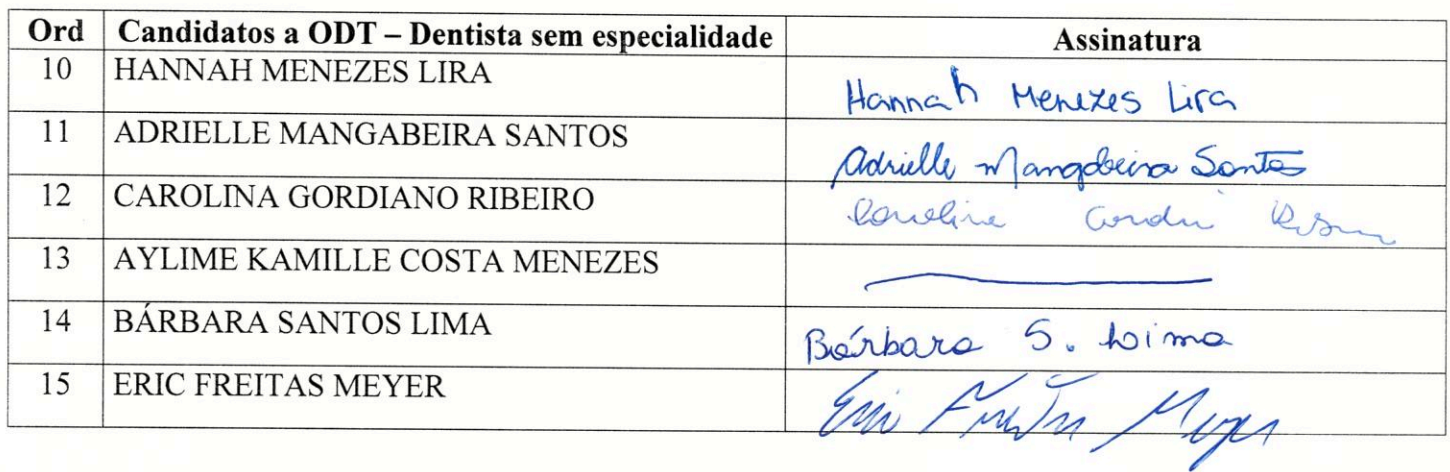 Ord Candidatos a ODT – Dentista sem especialidade Assinatura
10 HANNAH MENEZES LIRA Hannah Menezes Lira
11 ADRIELLE MANGABEIRA SANTOS Adrielle Mangabeira Santos
12 CAROLINA GORDIANO RIBEIRO
13 AYLIME KAMILLE COSTA MENEZES
14 BÁRBARA SANTOS LIMA Bárbara S. Lima
15 ERIC FREITAS MEYER Eric Freitas Meyer